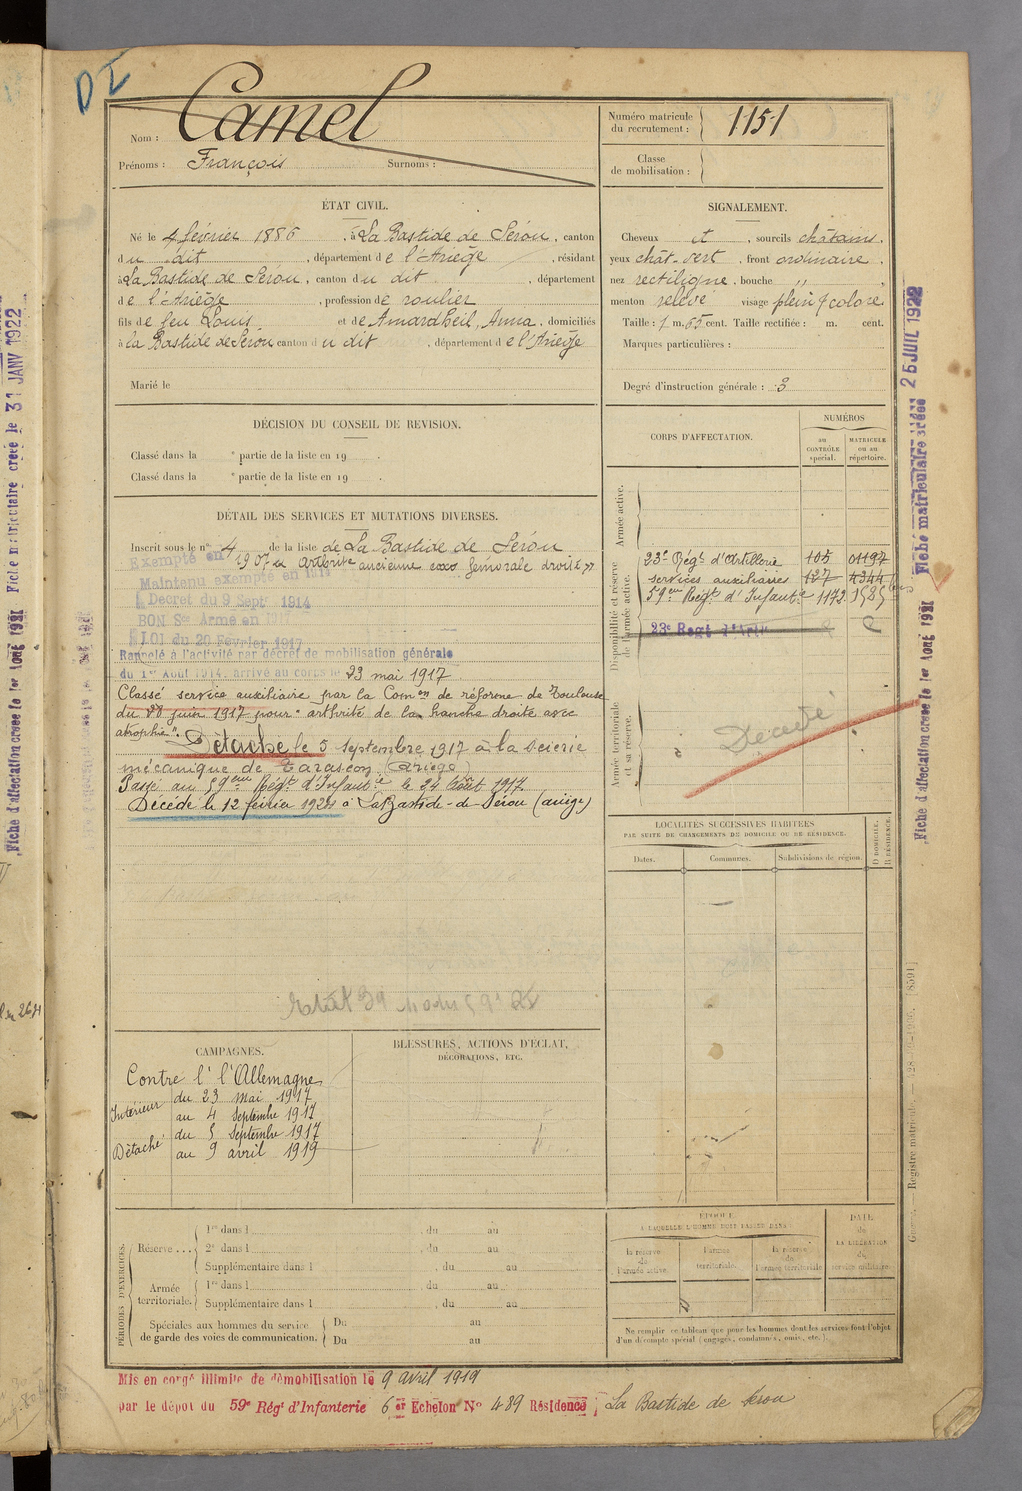 DI
Nom : Camel
Prénoms : François Surnoms :
Numéro matricule du recrutement : 1151
Classe de mobilisation :
ÉTAT CIVIL.
Né le 4 février 1886, à La Bastide de Sérou, canton
du dit, département de l'Ariège, résidant
à La Bastide de Sérou, canton du dit, département
de l'Ariège, profession de roulier
fils de feu Louis et de Amardheil, Anna, domiciliés
à la Bastide de Sérou canton du dit, département de l'Ariège
Marié le
SIGNALEMENT.
Cheveux et, sourcils châtains,
yeux chât-vert, front ordinaire,
nez rectiligne, bouche "
menton relevé visage plein & coloré
Taille : 1 m. 65 cent. Taille rectifiée : m. cent.
Marques particulières :
Degré d'instruction générale : 3
DÉCISION DU CONSEIL DE REVISION.
Classé dans la e partie de la liste en 19 .
Classé dans la e partie de la liste en 19 .
DÉTAIL DES SERVICES ET MUTATIONS DIVERSES.
Inscrit sous le n° 4 de la liste de La Bastide de Sérou
Exempté en 1907 arthrite ancienne coxo fémorale droite
Maintenu exempté en 1914
Décret du 9 Sept 1914
BON Sce Armé en 1917
LOI du 20 Février 1917
Rappelé à l'activité par décret de mobilisation générale
du 1er Août 1914, arrivé au corps le 23 mai 1917
Classé service auxiliaire par la Comon de réforme de Toulouse
du 28 juin 1917 pour "arthrite de la hanche droite avec
atrophie". Détaché le 5 septembre 1917 à la Scierie
mécanique de Tarascon (Ariège)
Passé au 59eme Régt d'Infantie le 24 Août 1917
Décédé le 12 février 1924 à La Bastide-de Sérou (ariège)
CORPS D'AFFECTATION.
NUMÉROS
au CONTRÔLE spécial.
MATRICULE ou au répertoire.
Armée active.
Disponibilité et réserve de l'armée active.
23e Régt d'Artillerie 105 01197
services auxiliaires 127 4344
59eme Régt d'Infantie 1172 1585
23e Regt d'Artie
Armée territoriale et sa réserve.
Décédé
LOCALITÉS SUCCESSIVES HABITÉES
PAR SUITE DE CHANGEMENTS DE DOMICILE OU DE RÉSIDENCE.
Dates. Communes. Subdivisions de région. D DOMICILE. R RÉSIDENCE.
CAMPAGNES.
Contre l' l'Allemagne
Intérieur du 23 Mai 1917
au 4 Septembre 1917
Détaché du 5 Septembre 1917
au 9 avril 1919
BLESSURES, ACTIONS D'ÉCLAT, DÉCORATIONS, ETC.
PÉRIODES D'EXERCICES.
Réserve ... 1re dans l , du au
2e dans l , du au
Supplémentaire dans l , du au
Armée territoriale. 1re dans l , du au
Supplémentaire dans l , du au
Spéciales aux hommes du service de garde des voies de communication. Du au
Du au
ÉPOQUE
À LAQUELLE L'HOMME DOIT PASSER DANS :
la réserve de l'armée active.
l'armée territoriale.
la réserve de l'armée territoriale
DATE de LA LIBÉRATION du service militaire.
Ne remplir ce tableau que pour les hommes dont les services font l'objet
d'un décompte spécial (engagés, condamnés, omis, etc.)
Mis en congé illimité de démobilisation le 9 avril 1919
par le dépôt du 59e Régt d'Infanterie 6 er Echelon No 489 Résidence : La Bastide de Sérou
Fiche d'affectation créée le 1er Août 1921 Fiche matriculaire créée le 31 JANV 1922
Fiche d'affectation créée le 1er Août 1921 Fiche matriculaire créée 25 JUIL 1922